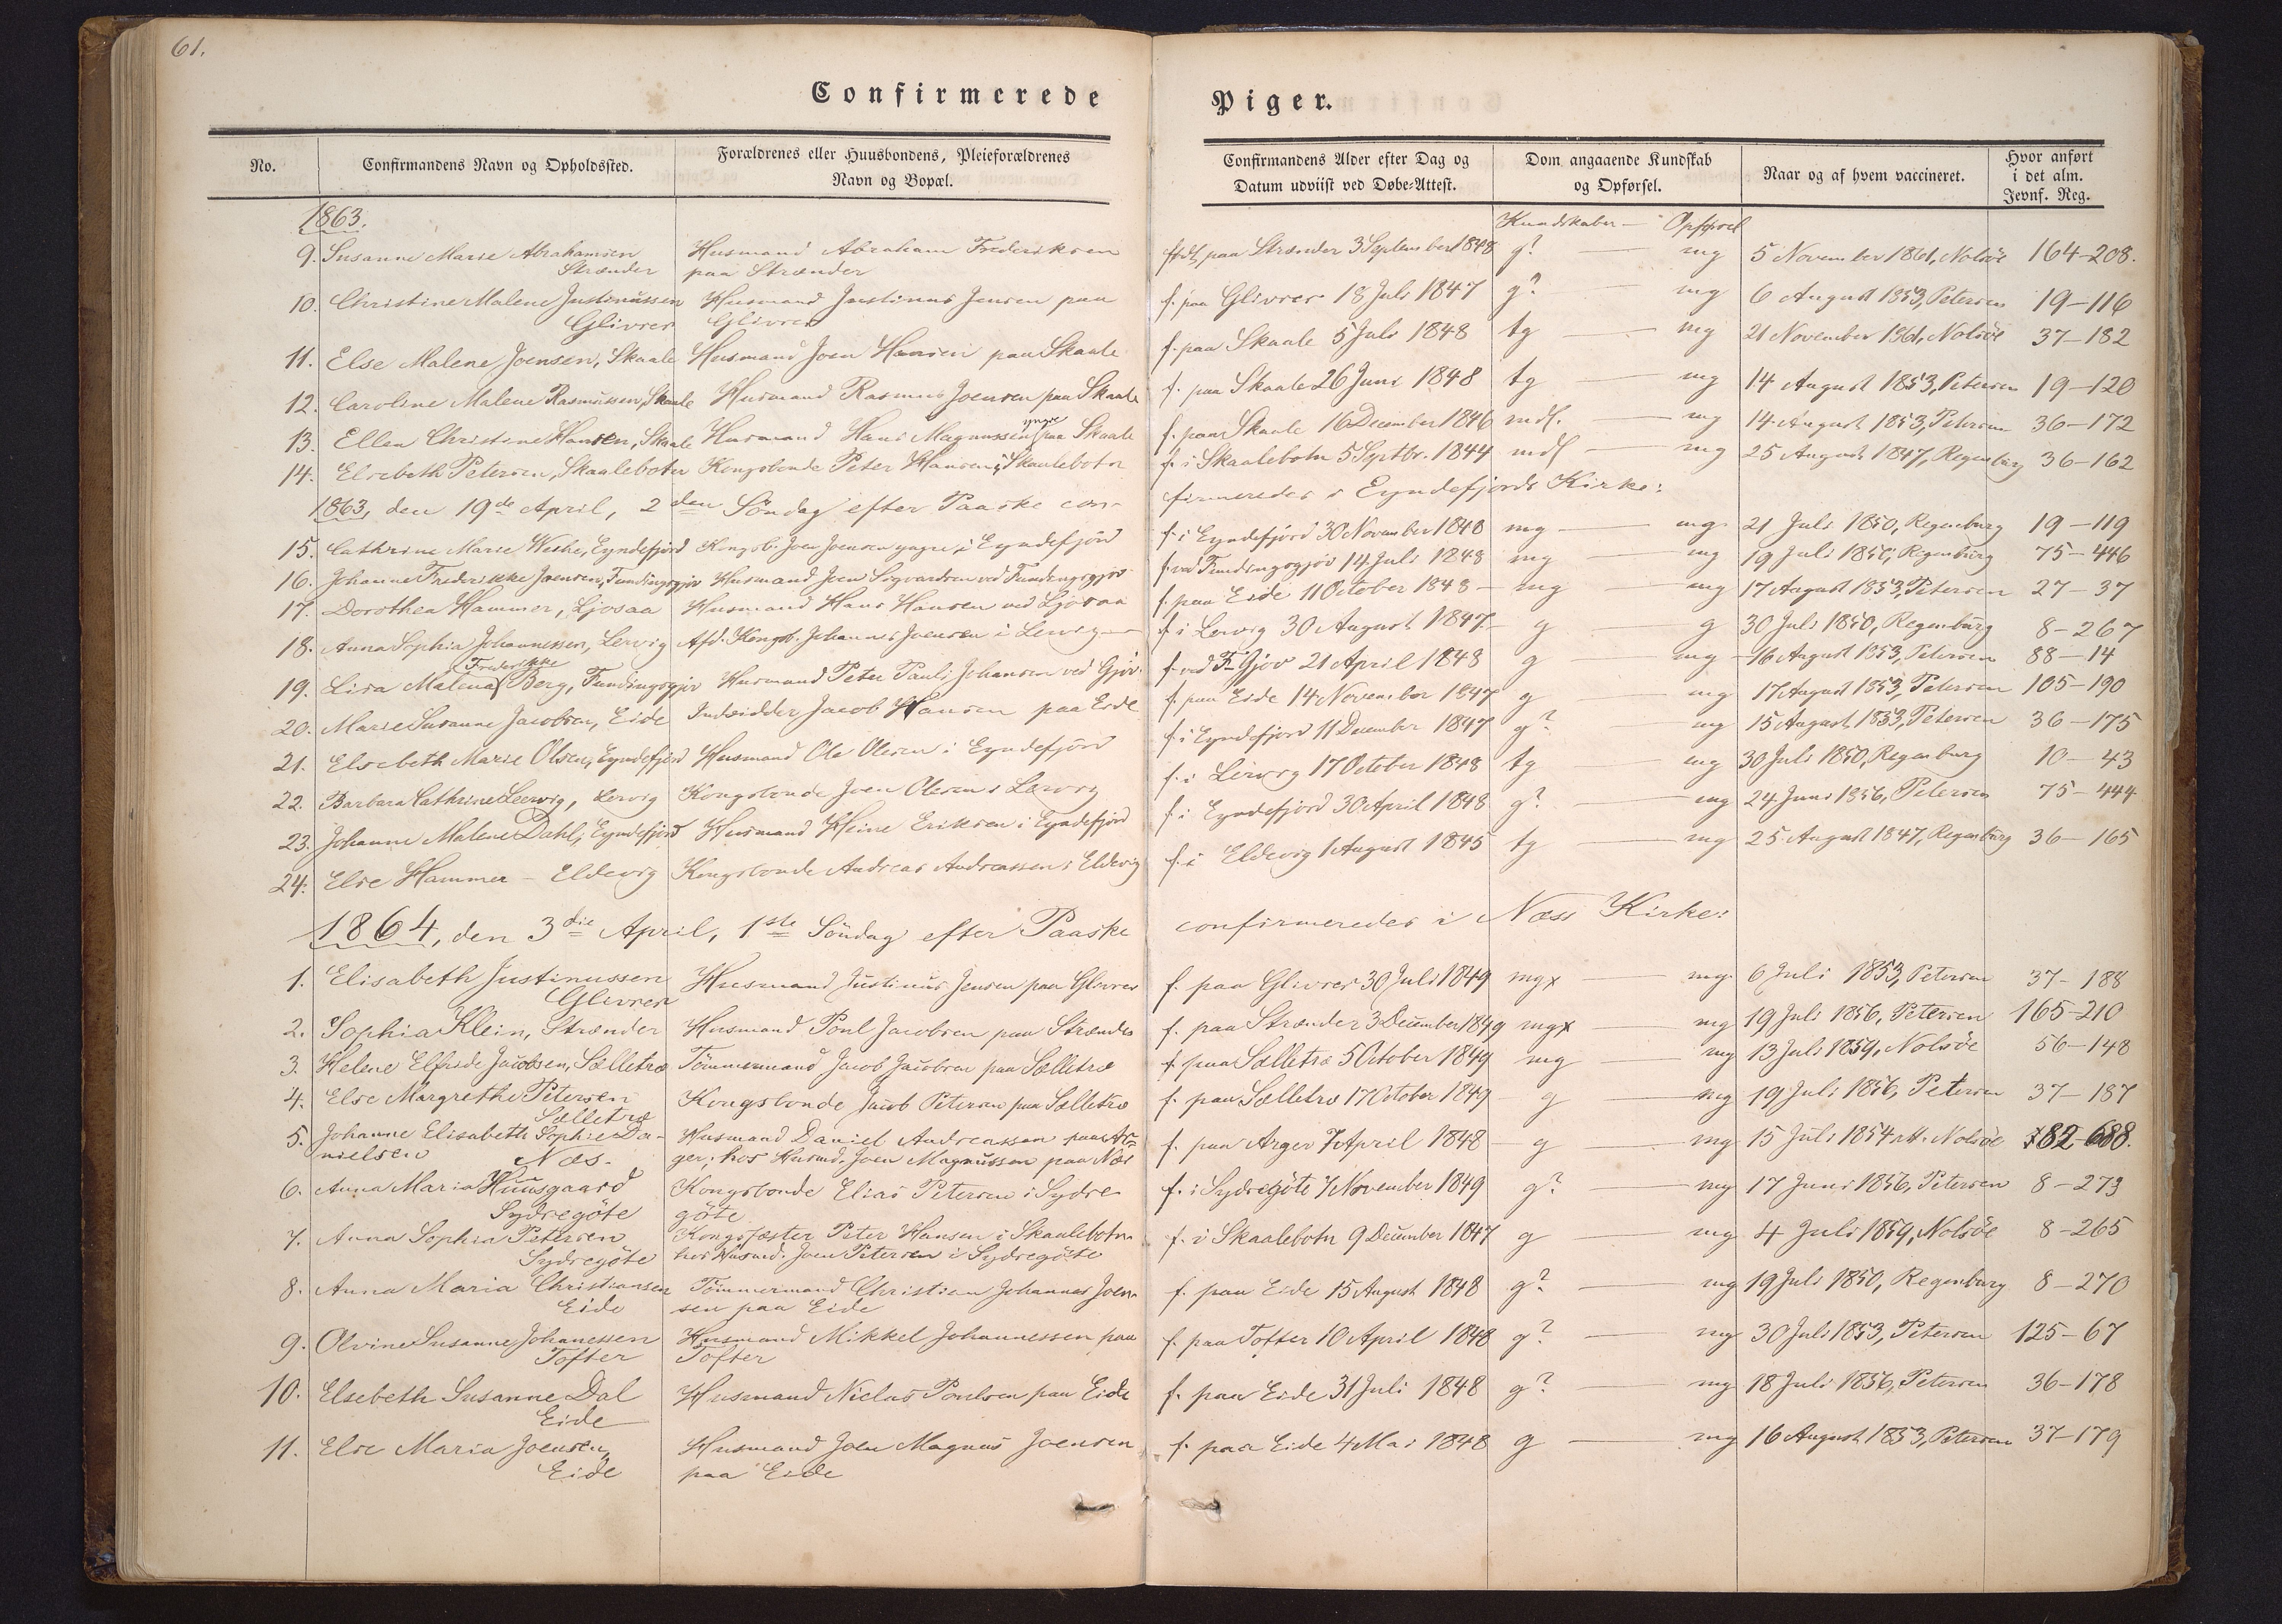 61.
Confirmerede Piger.
No. Confirmandens Navn og Opholdssted. Forældrenes eller Huusbondens, Pleieforældrenes Navn og Bopæl. Confirmandens Alder efter Dag og Datum udviist ved Døbe-Attest. Dom angaaende Kundskab og Opførsel. Naar og af hvem vaccineret. Hvor anført i det alm. Jevnf. Reg.
1863. Kundskaber — Opførsel
9. Susanne Marie Abrahamsen Husmand Abraham Frederiksen paa Strænder 3 September 1848 g? — mg 5 November 1861, Nolsöe 164-208.
Strænder paa Strænder
10. Christine Malene Justinussen Husmand Justinus Jensen paa f. paa Glivrer 18 Juli 1847 g? — mg 6 August 1853, Petersen 19-116
Glivrer Glivrer
11. Else Malene Joensen, Skaale Husmand Joen Hansen paa Skaale f. paa Skaale 5 Juli 1848 tg — mg 21 November 1861, Nolsöe 37-182
12. Caroline Malene Rasmussen, Skaale Husmand Rasmus Joensen paa Skaale f. paa Skaale 26 Juni 1848 tg — mg 14 August 1853, Petersen 19-120
13. Ellen Christine Hansen, Skaale Husmand Hans Magnussen yngre paa Skaale f. paa Skaale 16 December 1846 mdl. — mg 14 August 1853, Petersen 36-172
14. Elsebeth Petersen, Skaalebotn Kongsbonde Peter Hansen i Skaalebotn f. i Skaalebotn 5 Septbr. 1844 mdl — mg 25 August 1847, Regenburg 36-162
1863, den 19de April, 2den Söndag efter Paaske confirmeredes i Eyndefjords Kirke:
15. Cathrine Marie Weihe, Eyndefjord Kongsb. Joen Joensen yngre i Eyndefjörd f. i Eyndefjörd 30 November 1848 mg — mg 21 Juli 1850, Regenburg 19-119
16. Johanne Frederikke Joensen, Fundingsgjov Husmand Joen Sigvardsen ved Fundingsgjov f. ved Fundingsgjóv 14 Juli 1848 mg — mg 19 Juli 1850, Regenburg 75-446
17. Dorothea Hammer, Ljosaa Husmand Hans Hansen ved Ljósaa f. paa Eide 11 October 1848 — mg — mg 17 August 1853, Petersen 27-37
18. Anna Sophia Johannessen, Lervig Afd. Kongsb. Johannes Joensen i Lervig f. i Lervig 30 August 1847 — g — g 30 Juli 1850, Regenburg 8-267
19. Lisa Malena Frederikke Berg, Fundingsgjov Husmand Peter Pauli Johansen ved Gjóv. f. ved F-Gjov 21 April 1848 g — mg 16 August 1853, Petersen 88-14
20. Marie Susanne Jacobsen, Eide Indsidder Jacob Hansen paa Eide f. paa Eide 14 November 1847 g — mg 17 August 1853, Petersen 105-190
21. Elsebeth Marie Olsen, Eyndefjörd Husmand Ole Olesen i Eyndefjörd f. i Eyndefjord 11 December 1847 g? — mg 15 August 1853, Petersen 36-175
22. Barbara Cathrine Leervig, Lervig Kongsbonde Joen Olesen i Lervig f. i Lervig 17 October 1848 tg — mg 30 Juli 1850, Regenburg 10-43
23. Johanne Malene Dahl, Eyndefjörd Husmand Heine Eriksen i Eyndefjörd f. i Eyndefjörd 30 April 1848 g? — mg 24 Juni 1856, Petersen 75-444
24. Else Hammer - Eldevig Kongsbonde Andreas Andreassen i Eldevig f. i Eldevig 1 August 1845 tg — mg 25 August 1847, Regenburg 36-165
1864, den 3die April, 1ste Söndag efter Paaske confirmeredes i Næss Kirke:
1. Elisabeth Justinussen Husmand Justinus Jensen paa Glivrer f. paa Glivrer 30 Juli 1849 mgx — mg. 6 Juli 1853, Petersen 37-188
Glivrer
2. Sophia Klein, Strænder Husmand Poul Jacobsen paa Strænder f. paa Strænder 3 December 1849 mgx — mg 19 Juli 1856, Petersen 165-210
3. Helene Elfride Jacobsen, Sælletræ Tömmermand Jacob Jacobsen paa Sælletræ f. paa Sælletræ 5 October 1849 mg — mg 13 Juli 1859, Nolsöe 56-148
4. Else Margrethe Petersen Kongsbonde Jacob Petersen paa Sælletræ f. paa Sælletræ 17 October 1849 — g — mg 19 Juli 1856, Petersen 37-187
Sælletræ
5. Johanne Elisabeth Sophie Da- Husmand Daniel Andreassen paa Ar- f. paa Arger 7 April 1848 — g — mg 15 Juli 1854 Nolsöe 82-688.
nielsen Næs- ger; hos Husmd. Joen Magnussen paa Næs
6. Anna Maria Huusgaard Kongsbonde Elias Petersen i Sydre- f. i Sydregöte 7 November 1849 g? — mg 17 Juni 1856, Petersen 8-273
Sydregöte göte
7. Anna Sophia Petersen Kongsfæster Peter Hansen i Skaalebotn f. i Skaalebotn 9 December 1847 g — mg 4 Juli 1859, Nolsöe 8-265
Sydregöte hos Husmd. Joen Petersen i Sydregöte
8. Anna Maria Christiansen Tömmermand Christian Johannes Joen- f. paa Eide 15 August 1848 g? — mg 19 Juli 1850, Regenburg 8-270
Eide sen paa Eide
9. Olvine Susanne Johanessen Husmand Mikkel Johannessen paa f. paa Tofter 10 April 1848 g? — mg 30 Juli 1853, Petersen 125-67
Tofter Tofter
10. Elsebeth Susanne Dal Husmand Niclas Poulsen paa Eide f. paa Eide 31 Juli 1848 g? — mg 18 Juli 1856, Petersen 36-178
Eide
11. Else Maria Joensen, Husmand Joen Magnus Joensen f. paa Eide 4 Mai 1848 g — mg 16 August 1853, Petersen 37-179
Eide paa Eide